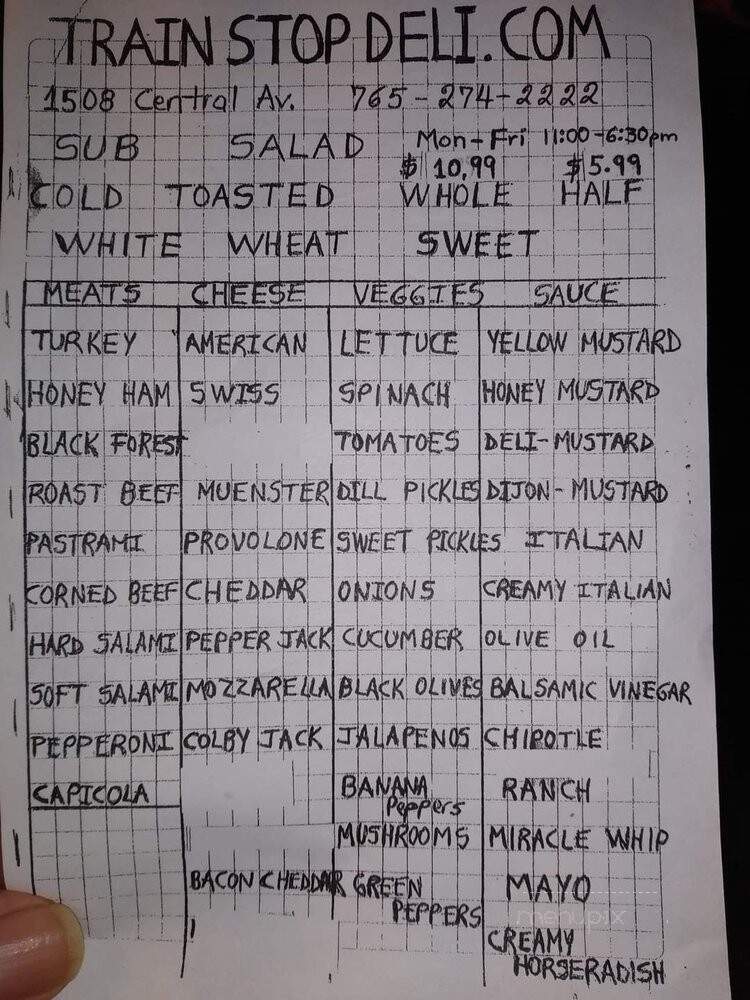 TRAIN STOP DELI.COM
1508 Central Av. 765-274-2222
SUB SALAD Mon-Fri 11:00-6:30pm
$ 10,99 $ 5.99
COLD TOASTED WHOLE HALF
WHITE WHEAT SWEET
MEATS CHEESE VEGGIES SAUCE
TURKEY AMERICAN LETTUCE YELLOW MUSTARD
HONEY HAM SWISS SPINACH HONEY MUSTARD
BLACK FOREST TOMATOES DELI-MUSTARD
ROAST BEEF MUENSTER DILL PICKLES DIJON-MUSTARD
PASTRAMI PROVOLONE SWEET PICKLES ITALIAN
CORNED BEEF CHEDDAR ONIONS CREAMY ITALIAN
HARD SALAMI PEPPER JACK CUCUMBER OLIVE OIL
SOFT SALAMI MOZZARELLA BLACK OLIVES BALSAMIC VINEGAR
PEPPERONI COLBY JACK JALAPENOS CHIPOTLE
CAPICOLA BANANA RANCH
Peppers
MUSHROOMS MIRACLE WHIP
BACON CHEDDAR GREEN MAYO
PEPPERS
menupix
CREAMY
HORSERADISH